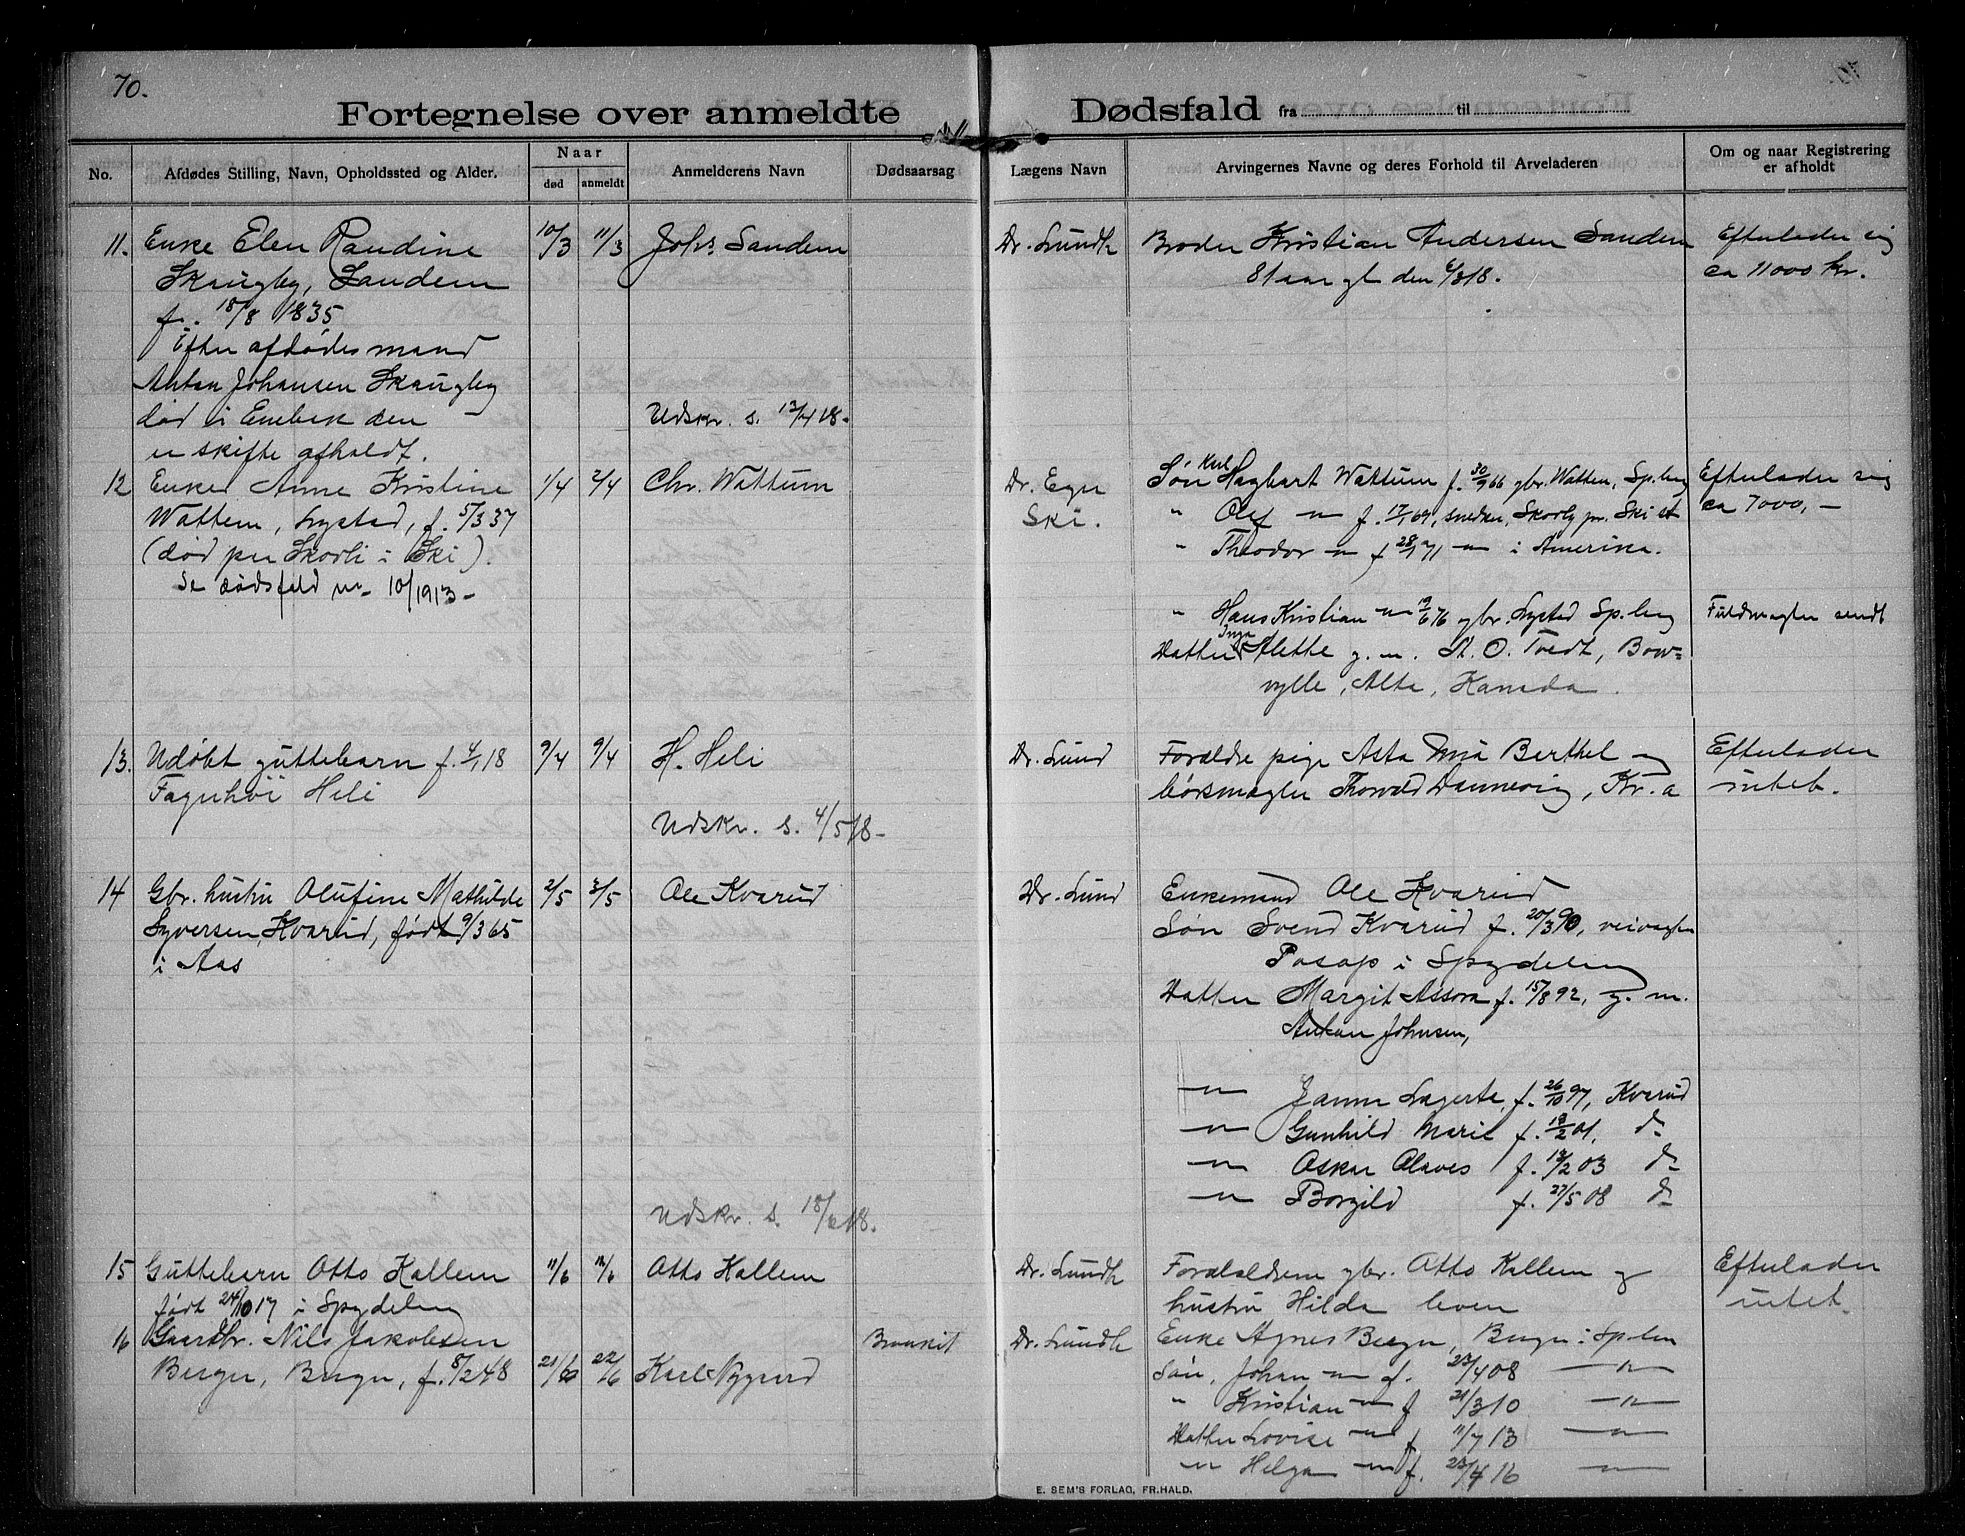 70.
Fortegnelse over anmeldte Dødsfald fra til
No.
Afdødes Stilling, Navn, Opholdssted og Alder.
Naar
død
anmeldt
Anmelderens Navn
Dødsaarsag
Lægens Navn
Arvingernes Navne og deres Forhold til Arveladeren
Om og naar Registrering
er afholdt
11. Enke Elen Randine 10/3 11/3 Johs Sandem Dr. Lundh Broder Kristian Andersen Sandem Efterlader sig
Skaugby, Sandem 81 aar gl den 6/3 18. ca 11000 kr.
f. 18/8 1835
Efter afdødes mand
Anton Johansen Skaugby
død i Enebak den Udskr. s. 13/4 18-
er skifte afholdt.
12 Enke Anne Kristine 1/4 2/4 Chr. Wattum Dr. Eger Søn Karl Hagbart Wattum f. 30/9 66 gbr. Watten, Sp.berg Efterlader sig
Wattem, Lysted, f. 5/3 37 Ski. " Olef — f. 17/1 69, snedker, Skorby pr. Ski st ca 7000,-
(død paa Skovli i Ski). " Theodor — f 28/1 71 — i Amerika.
Se dødsfald nr 10/1913-
" Hans Kristian — 19/6 76 gbr. Lysted Sp.berg Fuldmagter sendt
Datter Inga Alette g. m. A. O. Tvedt, Bow=
vylle, Alta, Kanada.
13. Udøbt guttebarn f. 4/1 18 9/4 9/4 H. Heli Dr. Lund Forældre pige Asta Berthel og Efterlader
Fagerhøi Heli børsmægler Thorvald Dannevig, Kr.a intet.
Udskr. s. 4/5 18-
14 Gbr. hustru Olufine Mathilde 2/5 3/5 Ole Kvarud Dr. Lund Enkemand Ole Kvarud
Syversen, Kvarud, født 9/3 65 Søn Svend Kvarud f. 20/3 90, veivogter
i Aas Posop i Spydeberg
Datter Margit Assora f. 15/8 92, g. m.
Anton Johnsen,
— Janna Lagerta, f. 26/10 97, Kvarud
— Gunhild Marie f. 19/2 01, do
— Oskar Olaves f. 19/2 03 do
— Borgild f. 27/5 08 do
Udskr. s. 18/6 18.
15 Guttebarn Otto Kallem 11/6 12/6 Otto Kallem Dr. Lundh Forældrene gbr. Otto Kallem og Efterlader
født 24/10 17 i Spydeberg hustru Hilda leven intet.
16 Gaardbr. Nils Jakobsen Bronkit Dr. Lundh Enke Agnes Berger, Berger i Sp.berg
Berger, Berger, f. 8/2 48 21/6 22/6 Karl Nygaard Søn, Johan — f. 23/4 08 —
" Kristian — f 21/3 10 —
Datter Lovise — f 11/7 13 —
— Helga — f. 23/4 16 —
E. SEM'S FORLAG, FR.HALD.